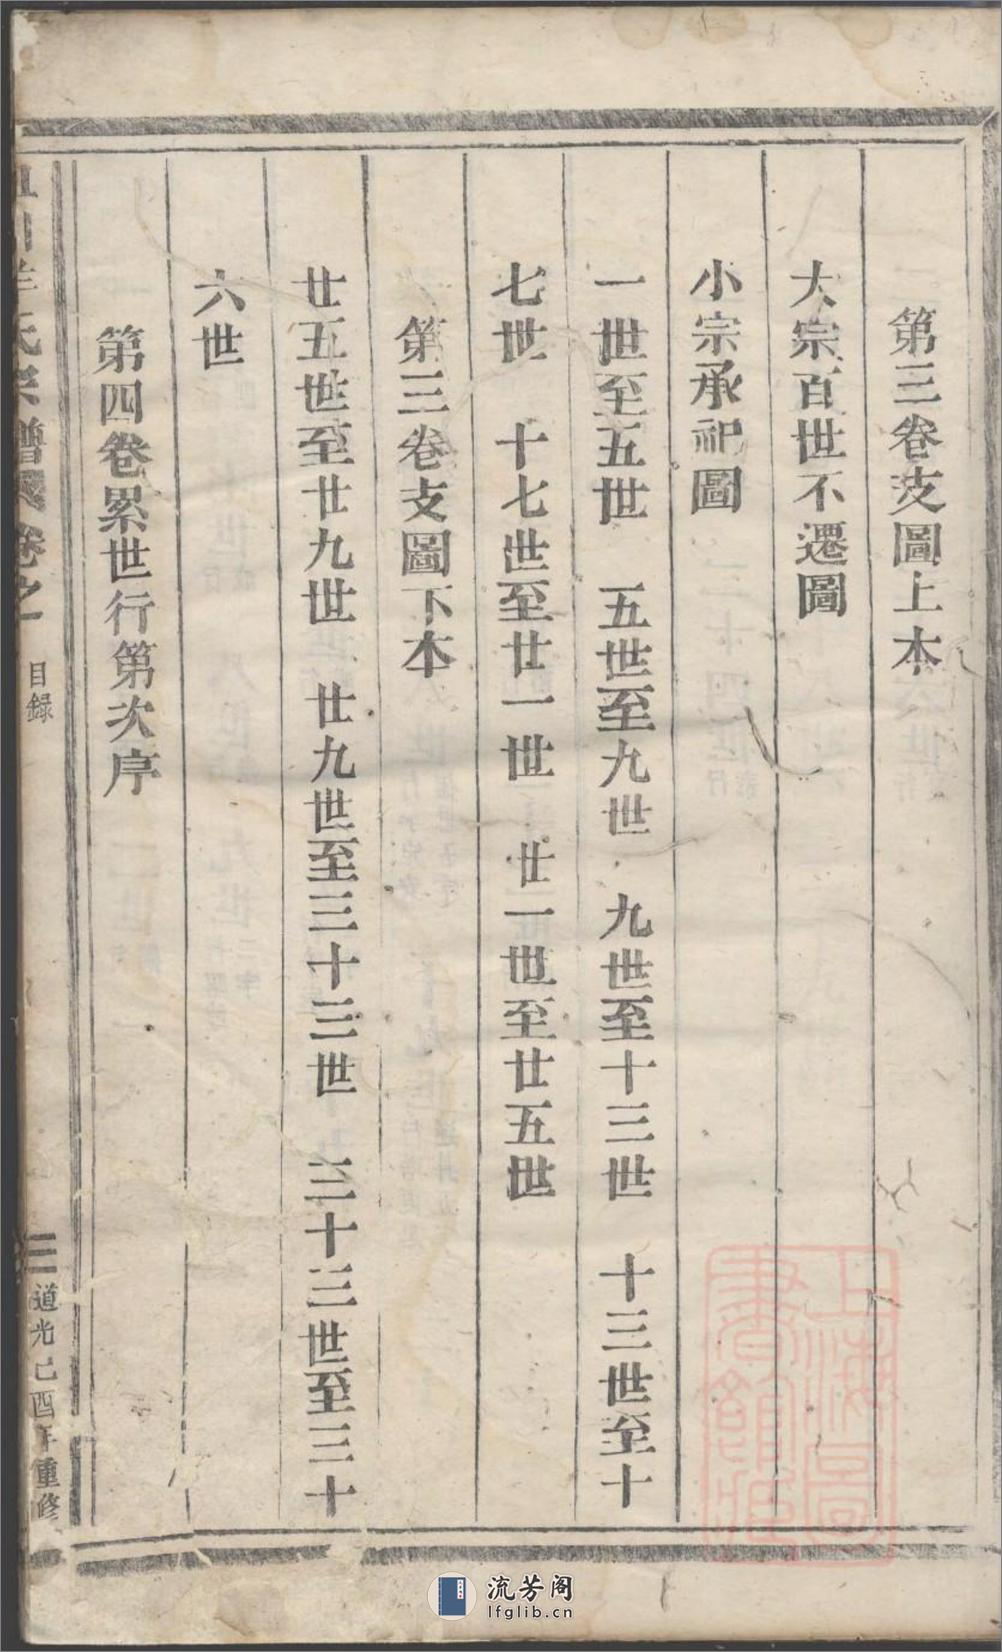 第三卷支圖上本
大宗百世不遷圖
小宗承祀圖
一世至五世 五世至九世 九世至十三世 十三世至十
七世 十七世至廿一世 廿一世至廿五世
第三卷支圖下本
廿五世至廿九世 廿九世至三十三世 三十三世至三十
六世
第四卷累世行第次序
氏宗譜 卷之一 目録 三 道光己酉年重修
上海圖書館藏
流芳阁
lfglib.cn